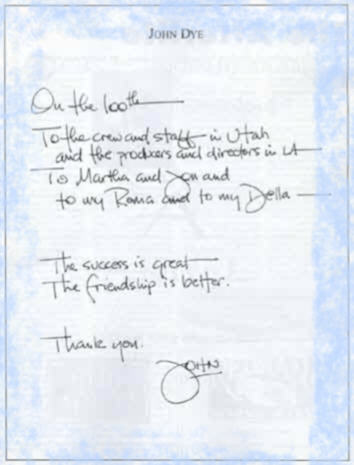 JOHN DYE
On the 100th —
To the crew and staff in Utah
and the producers and directors in LA —
To Martha and Jon and
to my Roma and to my Della —
The success is great —
The friendship is better.
Thank you.
JOHN